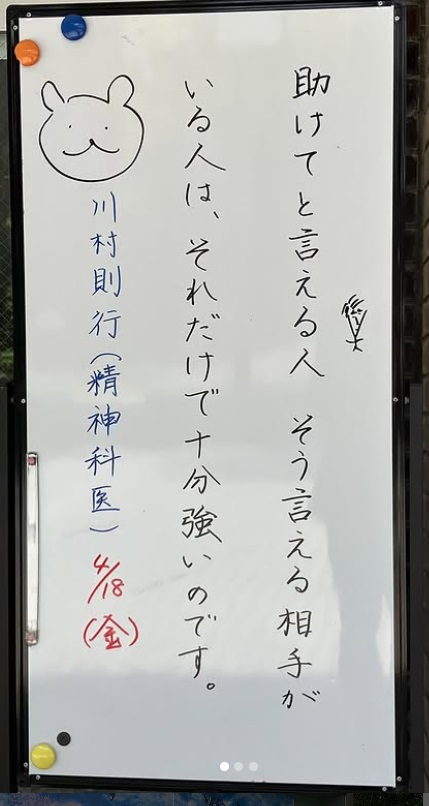 助けてと言える人　そう言える相手が
いる人は、それだけで十分強いのです。
川村則行（精神科医） 4/18（金）